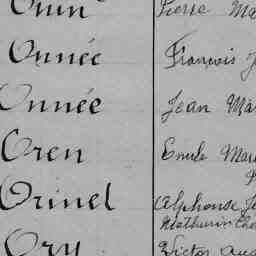 Pierre Ma
Onnée François J
Onnée Jean Ma
Oren Emile Mar
Orinel Alphonse Je
Mathurin
Ory Victor Aug